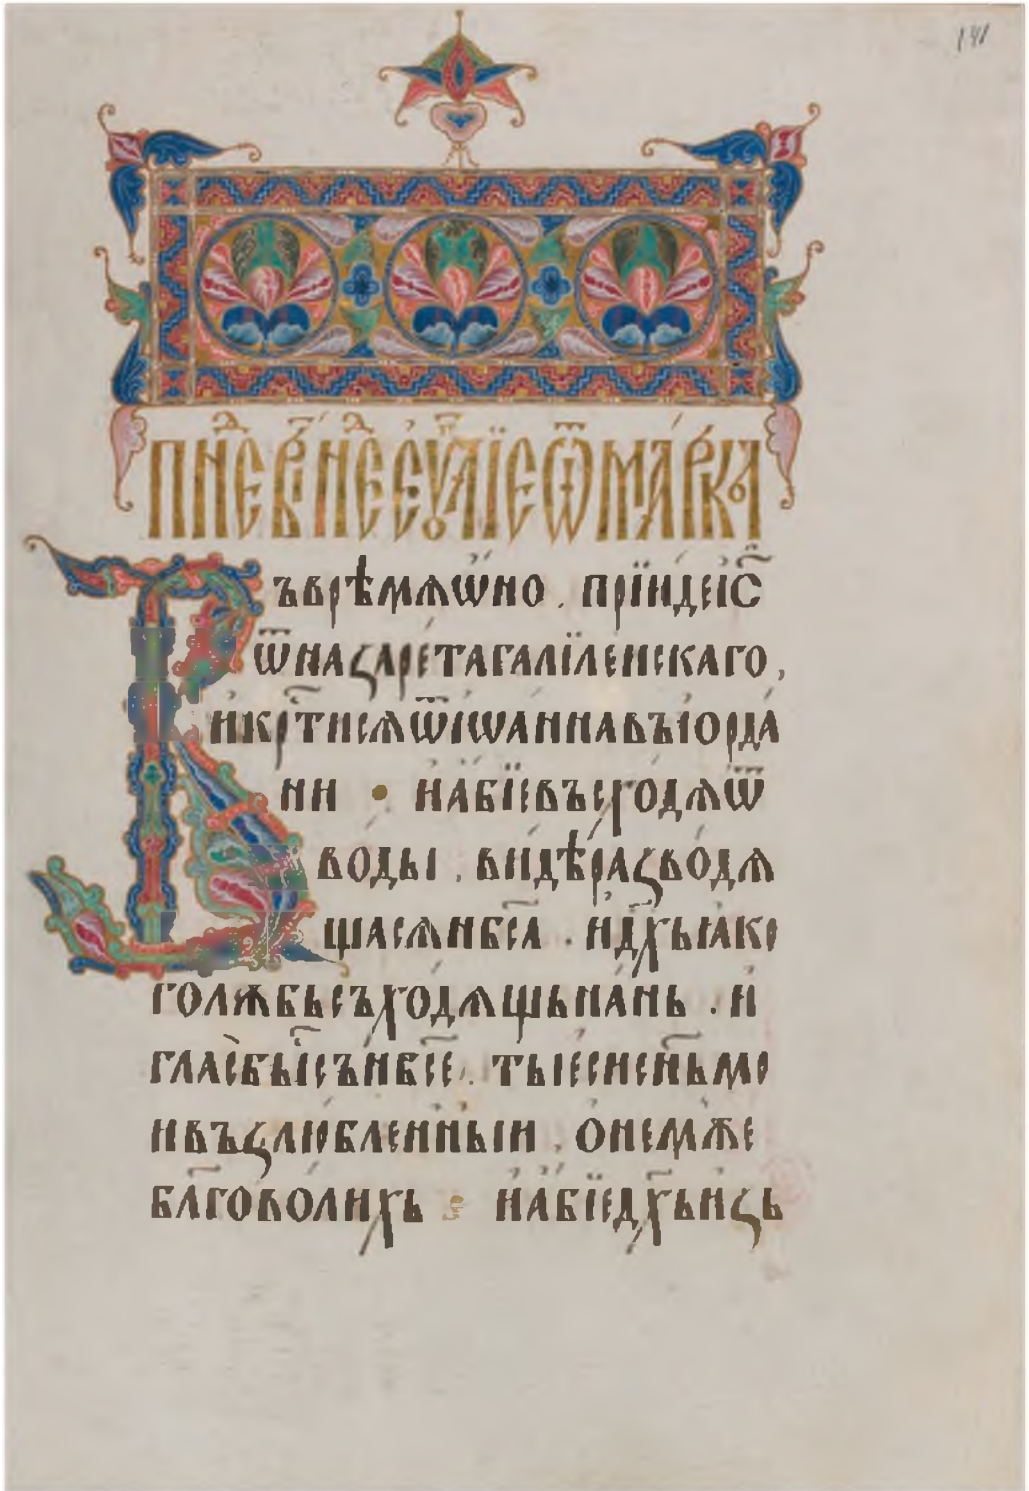 141
пн҃ев꙽рн҃е є҆ѵⷢ҇лїе ѿ ма́рка
Въ врѣмѧ ѡ҆но . прїи́де і҆с҃
ѿ назаре́та галїле́искаго,
и҆ кр҃тисѧ ѿ і҆ѡанна въ і҆ѡрда
ни • и҆ а҆бїе въсхо́дѧ ѿ
воды́ . ви́дѣ разводѧ
щасѧ нб҃са . и҆ дх҃ь ꙗко
голѫбь съходѧщь на́нь . и
гла́съ бы́с҃ съ нб҃се . ты еси сн҃ь мо
и възлюбле́нныи . о҆ немже
бл҃говолихь • и҆ а҆бїе дх҃ь и҆зь